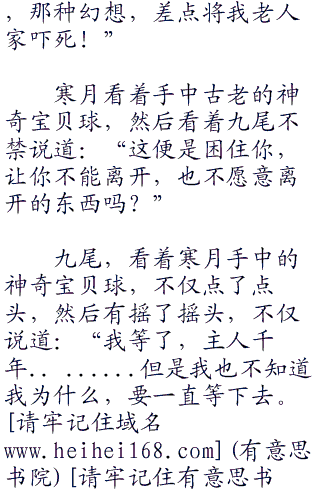 ，那种幻想，差点将我老人
家吓死！”
寒月看着手中古老的神
奇宝贝球，然后看着九尾不
禁说道：“这便是困住你，
让你不能离开，也不愿意离
开的东西吗？”
九尾，看着寒月手中的
神奇宝贝球，不仅点了点
头，然后有摇了摇头，不仅
说道：“我等了，主人千
年．．．．．．．．但是我也不知道
我为什么，要一直等下去。
[请牢记住域名
www.heihei168.com](有意思
书院)[请牢记住有意思书